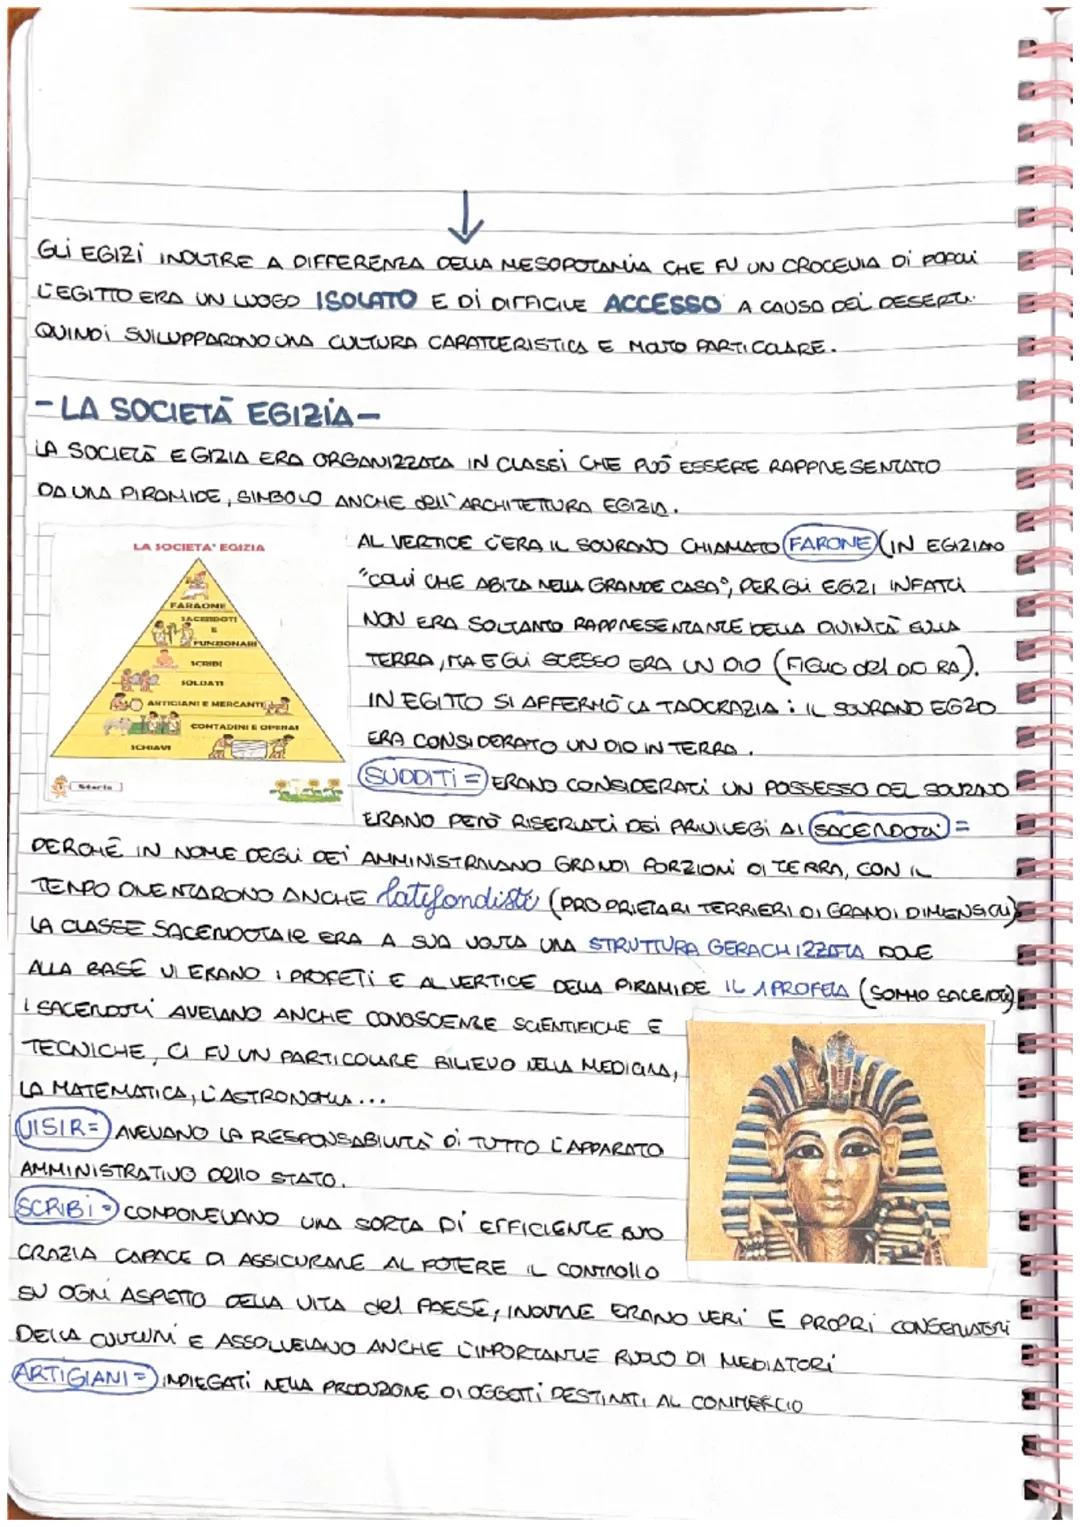 GLI EGIZI INOLTRE A DIFFERENZA DELLA MESOPOTAMIA CHE FU UN CROCEVIA DI POPOLI
L'EGITTO ERA UN LUOGO ISOLATO E DI DIFFICILE ACCESSO A CAUSA DEI DESERTI.
QUINDI SVILUPPARONO UNA CULTURA CARATTERISTICA E MOLTO PARTICOLARE.
- LA SOCIETÀ EGIZIA -
LA SOCIETÀ EGIZIA ERA ORGANIZZATA IN CLASSI CHE PUÒ ESSERE RAPPRESENTATO
DA UNA PIRAMIDE, SIMBOLO ANCHE dell'ARCHITETTURA EGIZIA.
LA SOCIETA' EGIZIA
FARAONE
SACERDOTI
E
FUNZIONARI
SCRIBI
SOLDATI
ARTIGIANI E MERCANTI
CONTADINI E OPERAI
SCHIAVI
Storia
AL VERTICE C'ERA IL SOURANO CHIAMATO FARONE (IN EGIZIANO
"COLUI CHE ABITA NELLA GRANDE CASA", PER GLI EGIZI INFATTI
NON ERA SOLTANTO RAPPRESENTANTE DELLA DIVINITÀ SULLA
TERRA, MA EGLI STESSO ERA UN DIO (FIGLIO DEL DIO RA).
IN EGITTO SI AFFERMÒ LA TAOCRAZIA: IL SOURANO EGIZIO
ERA CONSIDERATO UN DIO IN TERRA.
SUDDITI = ERANO CONSIDERATI UN POSSESSO DEL SOURANO
ERANO PERÒ RISERVATI DEI PRIVILEGI AI SACERDOTI =
PERCHÉ IN NOME DEGLI DEI AMMINISTRAVANO GRANDI PORZIONI DI TERRA, CON IL
TEMPO DIVENTARONO ANCHE latifondisti (PROPRIETARI TERRIERI DI GRANDI DIMENSIONI)
LA CLASSE SACERDOTALE ERA A SUA VOLTA UNA STRUTTURA GERACHIZZATA DOVE
ALLA BASE VI ERANO I PROFETI E AL VERTICE DELLA PIRAMIDE IL 1 PROFETA (SOMMO SACERDOTE)
I SACERDOTI AVEVANO ANCHE CONOSCENZE SCIENTIFICHE E
TECNICHE, CI FU UN PARTICOLARE RILIEVO NELLA MEDICINA,
LA MATEMATICA, L'ASTRONOMIA...
VISIR = AVEVANO LA RESPONSABILITÀ DI TUTTO L'APPARATO
AMMINISTRATIVO DELLO STATO.
SCRIBI = COMPONEVANO UNA SORTA DI EFFICIENTE BURO
CRAZIA CAPACE DI ASSICURARE AL POTERE IL CONTROLLO
SU OGNI ASPETTO DELLA VITA del PAESE, INOLTRE ERANO VERI E PROPRI CONSERVATORI
DELLA E ASSOLVEVANO ANCHE L'IMPORTANTE RUOLO DI MEDIATORI
ARTIGIANI = IMPIEGATI NELLA PRODUZIONE DI OGGETTI DESTINATI AL COMMERCIO